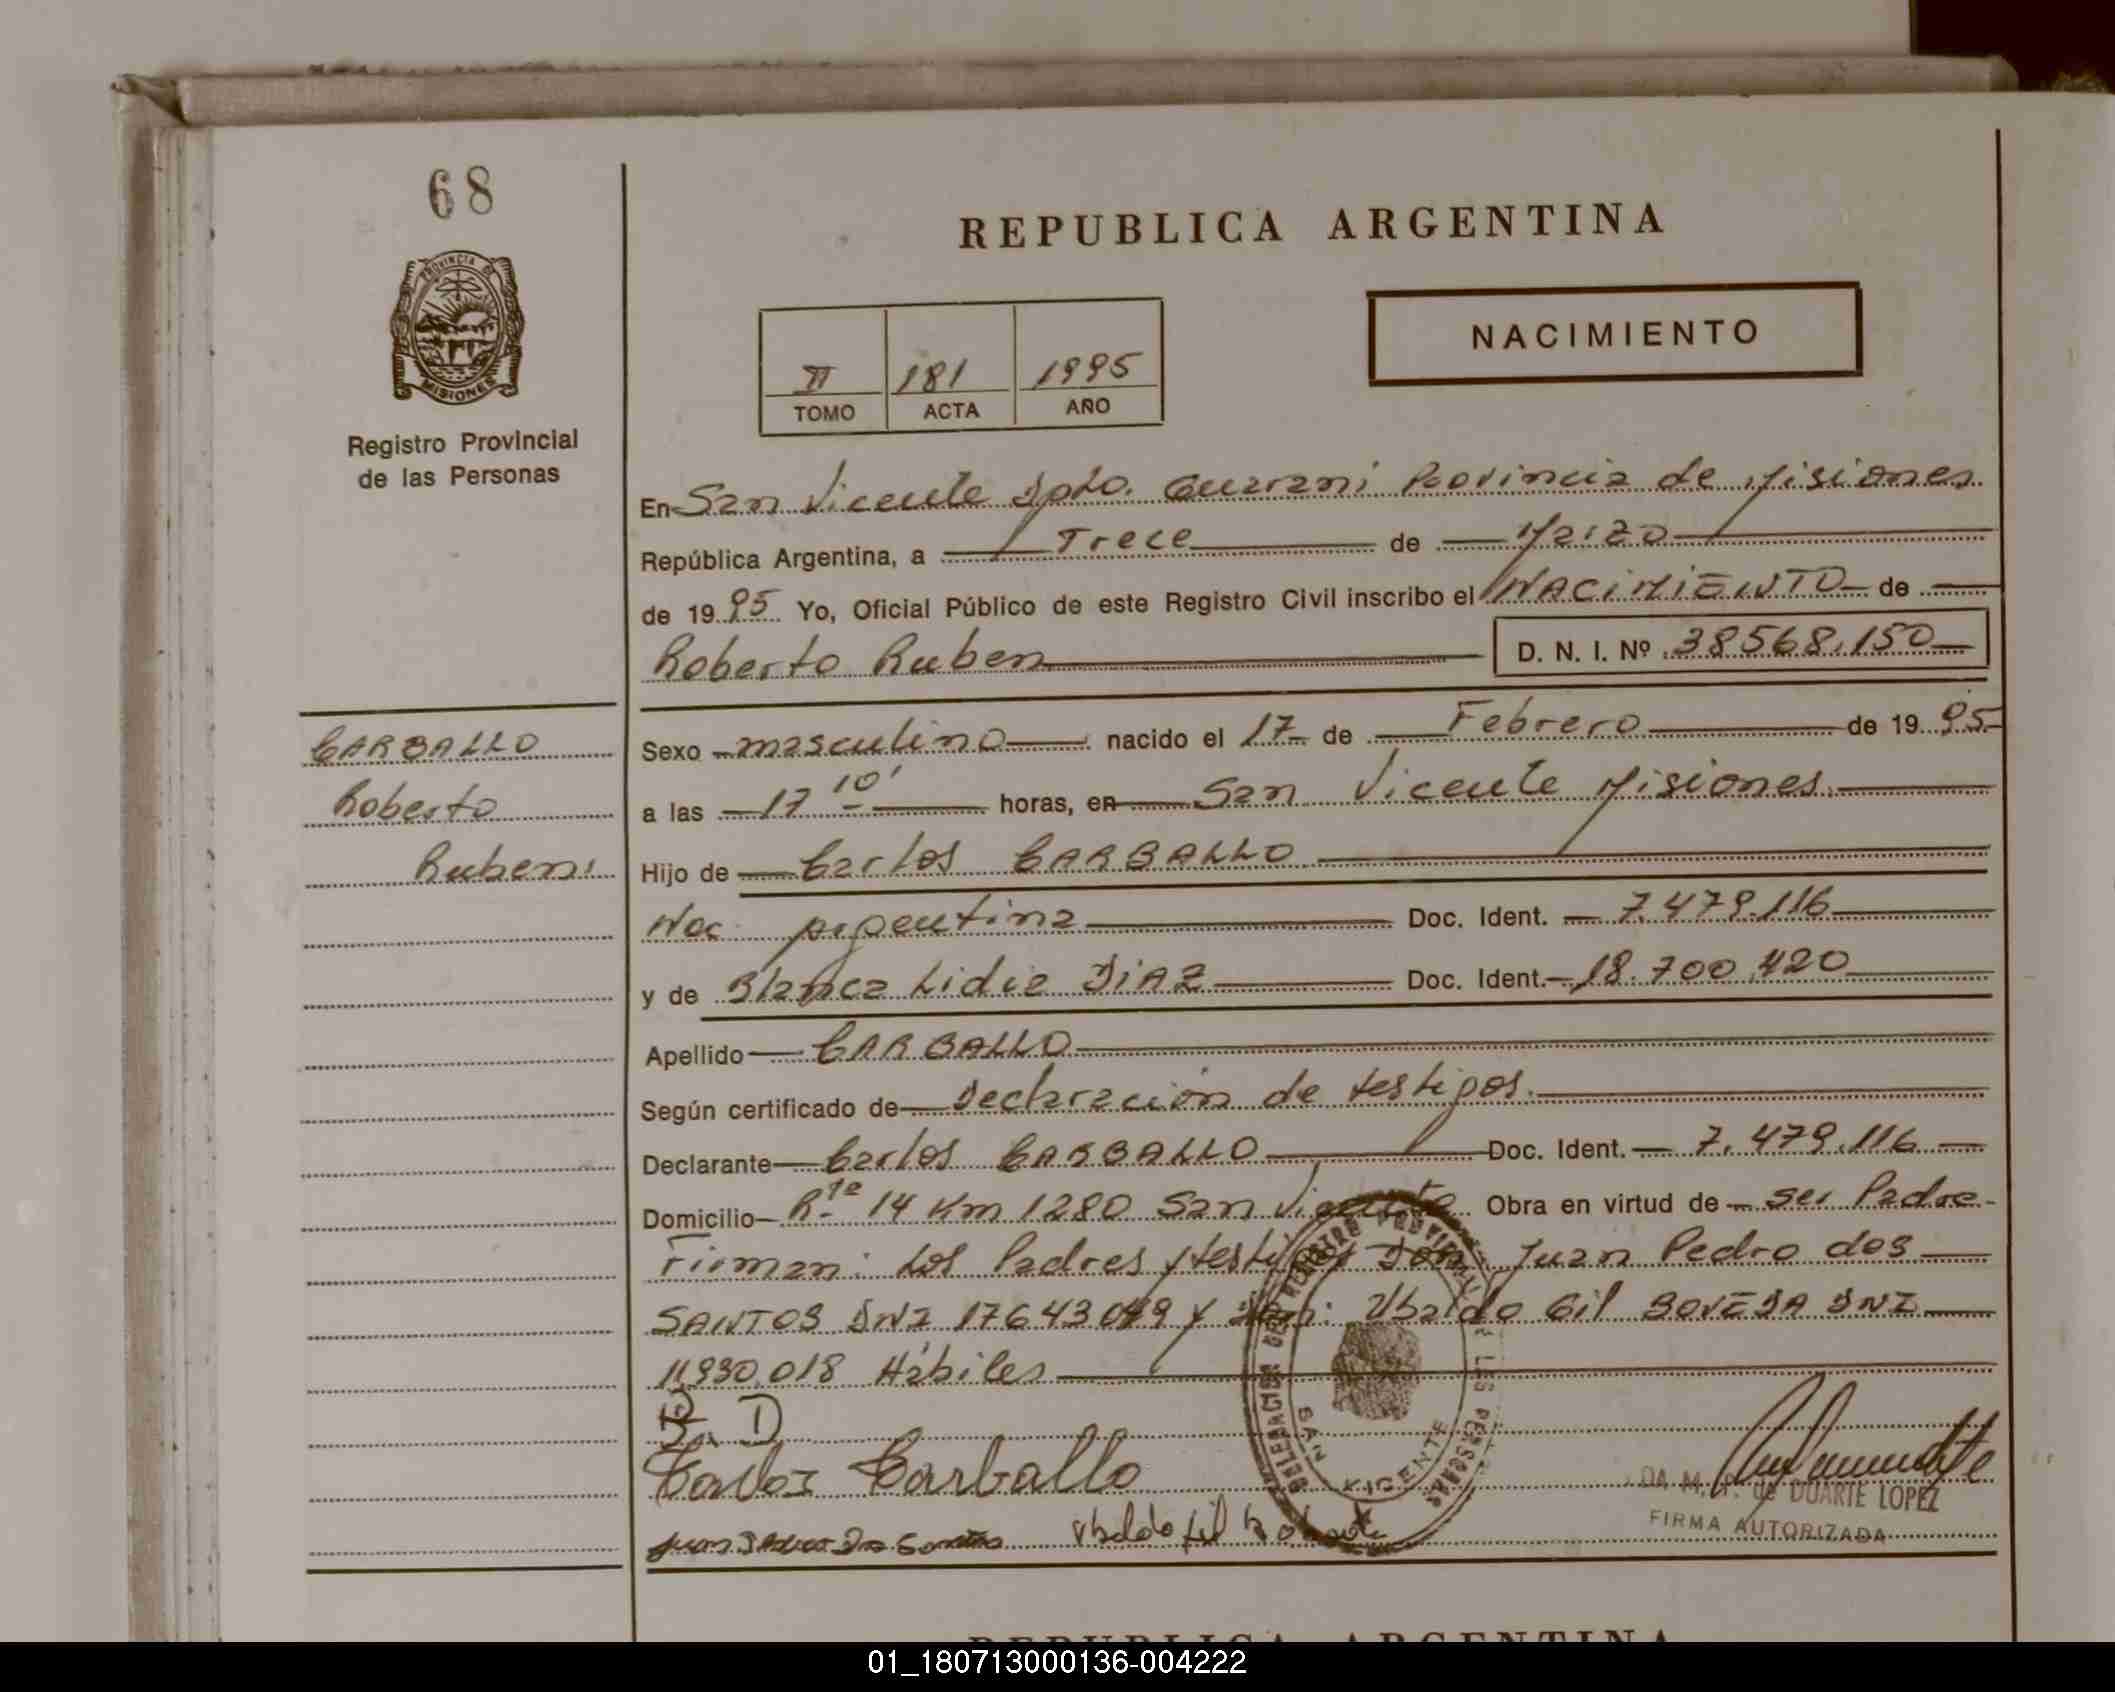 68
REPUBLICA ARGENTINA
PROVINCIA DE
MISIONES
Registro Provincial
de las Personas
II 181 1995
TOMO ACTA AÑO
NACIMIENTO
En San Vicente Dpto. Guarani Provincia de Misiones
República Argentina, a Trece de Marzo
de 19 95 Yo, Oficial Público de este Registro Civil inscribo el NACIMIENTO de
Roberto Ruben D. N. I. Nº 38568.150
CARBALLO
Roberto
Ruben
Sexo masculino nacido el 17 de Febrero de 19 95
a las 17 10' horas, en San Vicente Misiones
Hijo de Carlos CARBALLO
Nac. Argentina Doc. Ident. 7.479.116
y de Blanca Lidia DIAZ Doc. Ident. 18.700.420
Apellido CARBALLO
Según certificado de Declaración de testigos.
Declarante Carlos CARBALLO Doc. Ident. 7.479.116
Domicilio R.ta 14 Km 1280 San Vicente Obra en virtud de ser Padre
Firman: Los Padres y testigos Don Juan Pedro dos
SANTOS DNI y Don: Ubaldo Gil DNI
11930.018 Hábiles
B. D
Carlos Carballo
DELEGACION DEL REGISTRO PROVINCIAL DE LAS PERSONAS
SAN VICENTE
DUARTE LOPEZ
FIRMA AUTORIZADA
REPUBLICA ARGENTINA
01_180713000136-004222